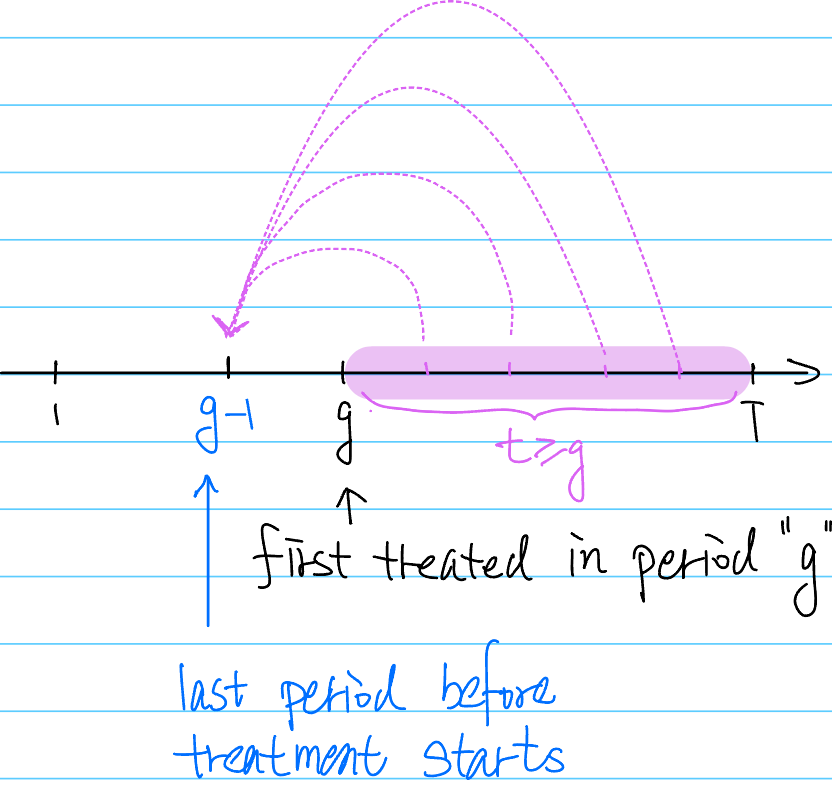 1 g-1 g T
t≥g
first treated in period "g"
last period before
treatment starts